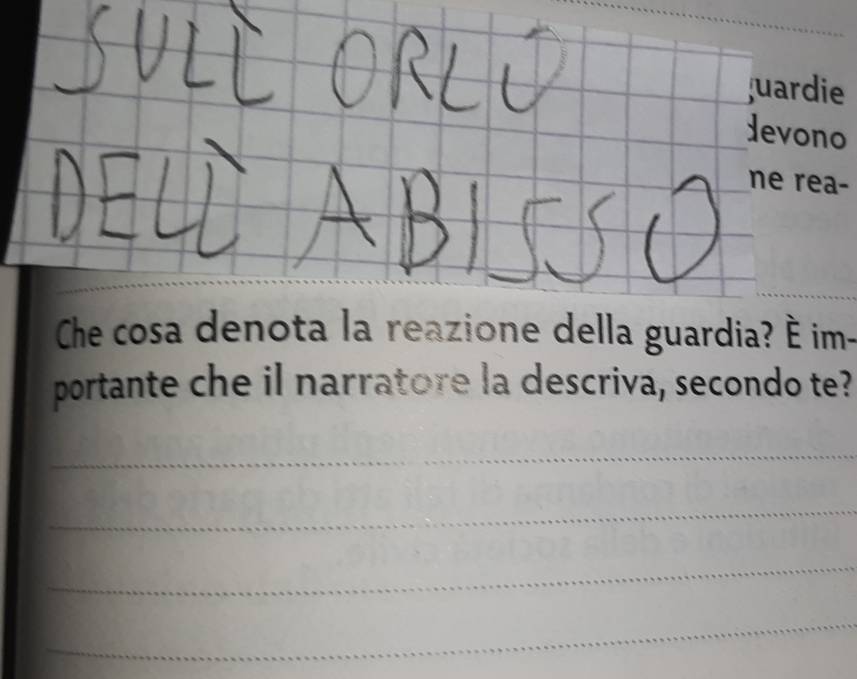 SULL' ORLO
guardie
devono
DELL' ABISSO
ne rea-
Che cosa denota la reazione della guardia? È im-
portante che il narratore la descriva, secondo te?